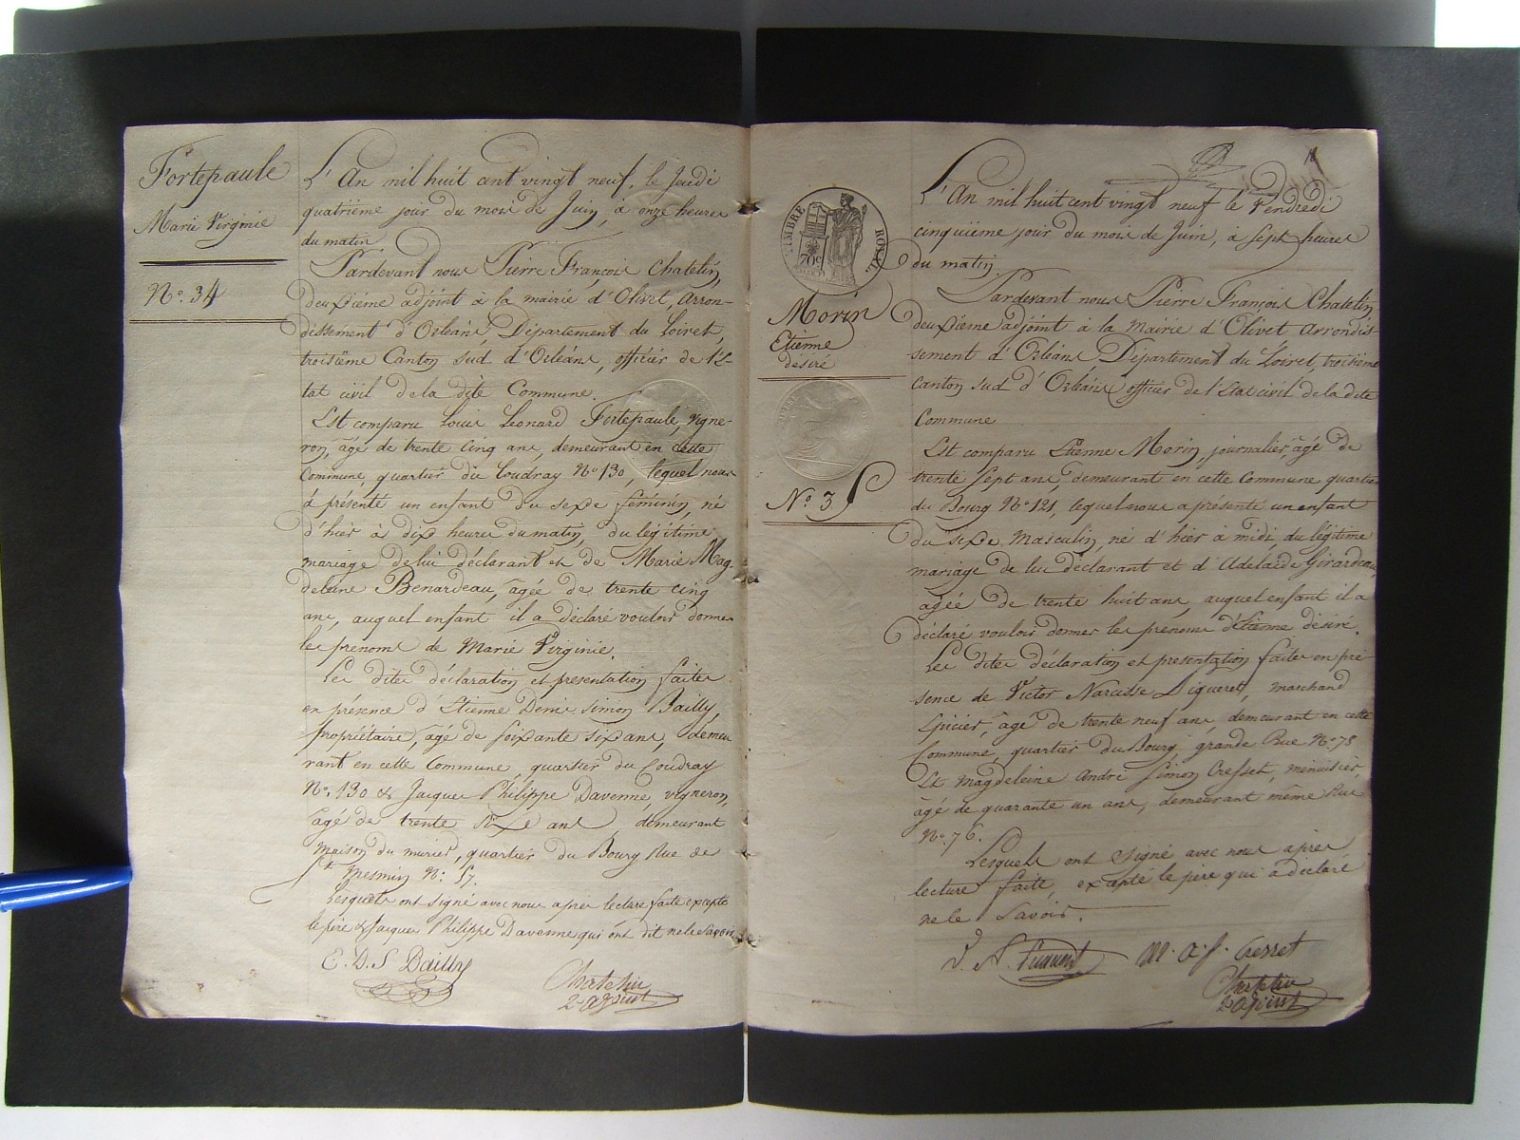 Fortepaule
Marie Virginie
N.º 34
L'An mil huit cent vingt neuf, le Jeudi
quatrième jour du mois de Juin, à onze heures
du matin
Pardevant nous Pierre François Chatelin,
deuxième adjoint à la mairie d'Olivet, arron-
dissement d'Orléans, Département du Loiret,
troisième Canton sud d'Orléans, officier de l'E-
tat civil de la dite Commune.
Est comparu Louis Léonard Fortepaule, vigne-
ron, âgé de trente cinq ans, demeurant en cette
Commune, quartier du Coudray Nº 130, lequel nous
à présenté un enfant du sexe féminin, né
d'hier à dix heures du matin, du légitime
mariage de lui déclarant et de Marie Mag-
deleine Benardeau, âgée de trente cinq
ans, auquel enfant il a déclaré vouloir donner
les prenoms de Marie Virginie.
Les dites déclaration et présentation faites
en présence d'Etienne Denis Simon Bailly,
propriétaire, âgé de soixante six ans, demeu
rant en cette Commune quartier du Coudray
Nº. 130 & Jacques Philippe Davenne, vigneron,
âgé de trente six ans demeurant
maison du murier, quartier du Bourg Rue de
St Mesmin Nº. 57.
Lesquels ont signé avec nous après lecture faite excepté
le père & Jacques Philippe Davenne qui ont dit ne le savoir
E. D. S Bailly
Chatelin
2e adjoint
TIMBRE ROYAL
70c
Morin
Etienne
désiré
Nº. 35
L'An mil huit cent vingt neuf le Vendredi
cinquième jour du mois de Juin, à sept heures
du matin
Pardevant nous Pierre François Chatelin
deuxième adjoint à la Mairie d'Olivet arrondis
sement d'Orléans Département du Loiret, troisième
Canton sud d'Orléans officier de l'Etat civil de la dite
Commune
Est comparu Etienne Morin journalier, âgé de
trente sept ans, demeurant en cette Commune quartier
du Bourg Nº 121, lequel nous a présenté un enfant
du sexe masculin, né d'hier à midi, du légitime
mariage de lui déclarant et d'Adelaïde Girardeau,
agée de trente huit ans, auquel enfant il a
déclaré vouloir donner les prenoms d'Etienne désiré.
Les dites déclaration et présentation faites en pré
sence de Victor Narcisse Digueret, marchand
Epicier, âgé de trente neuf ans, demeurant en cette
Commune, quartier du Bourg, grande Rue Nº. 75
Et Magdeleine André Simon Cresset, menuisier,
âgé de quarante un ans, demeurant même Rue
Nº. 76.
Lesquels ont signé avec nous après
lecture faite, excepté le père qui a déclaré
ne le savoir.
M. A. S. Cresset
Chatelin
2e adjoint